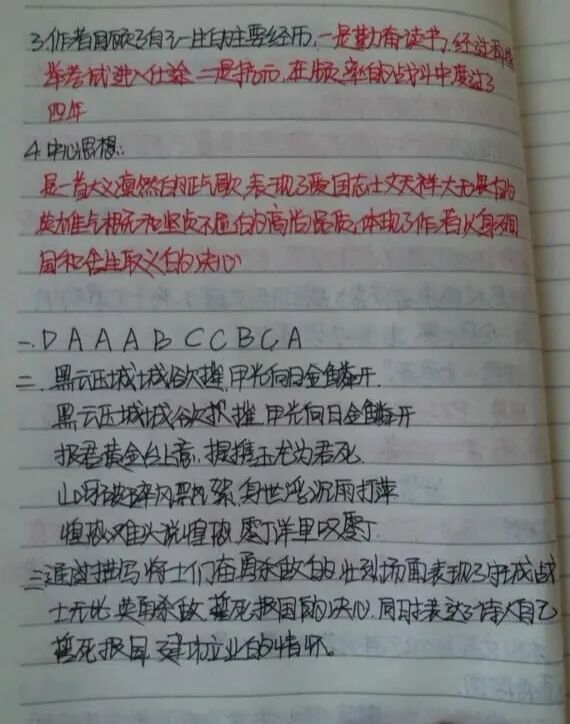 3.作者回顾了自己一生的主要经历,一是勤奋读书,经过科
举考试进入仕途 二是抗元,在频繁的战斗中度过了
四年
4.中心思想:
是一首大义凛然的正气歌,表现了爱国志士文天祥大无畏的
英雄气概和坚贞不屈的高尚品质,体现了作者以身殉
国和舍生取义的决心
一. D A A A B C C B C A
二. 黑云压城城欲摧,甲光向日金鳞开.
黑云压城城欲摧,甲光向日金鳞开
报君黄金台上意,提携玉龙为君死.
山河破碎风飘絮,身世浮沉雨打萍
惶恐滩头说惶恐,零丁洋里叹零丁.
三.通过描写将士们奋勇杀敌的壮烈场面表现了守城战
士无比英勇杀敌,誓死报国的决心.同时表达了诗人自己
誓死报国.建功立业的情怀.